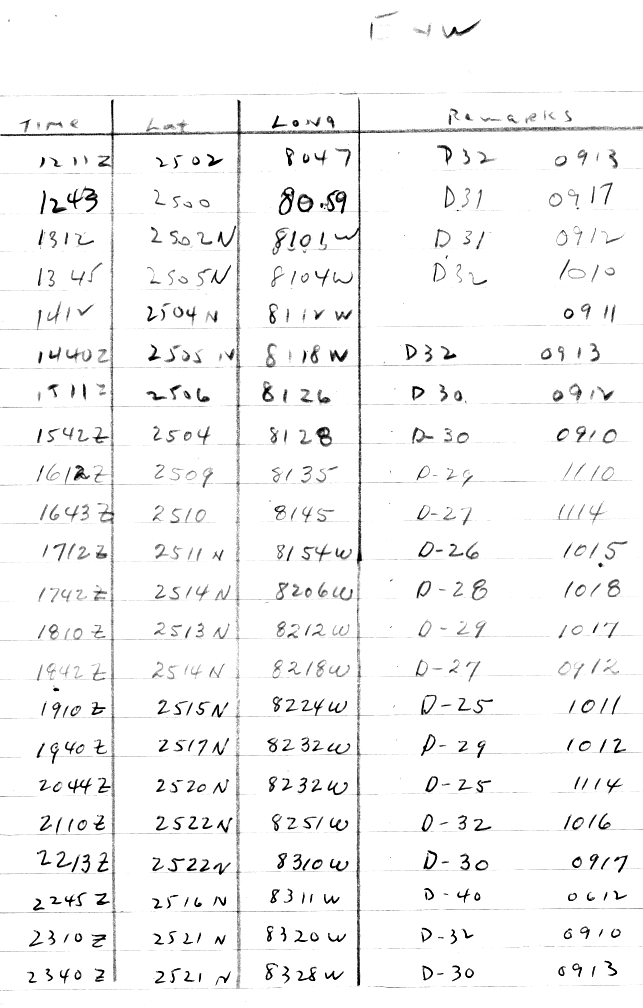 E + W
Time Lat Long Remarks
1211Z 2502 8047 D32 0913
1243 2500 80.59 D31 0917
1312 2502N 8101W D31 0912
1345 2505N 8104W D32 1010
1412 2504N 8112W 0911
1440Z 2505N 8118W D32 0913
1511Z 2506 8126 D30 0912
1542Z 2504 8128 D-30 0910
1612Z 2509 8135 D-29 1110
1643Z 2510 8145 D-27 1114
1712Z 2511N 8154W D-26 1015
1742Z 2514N 8206W D-28 1018
1810Z 2513N 8212W D-29 1017
1842Z 2514N 8218W D-27 0912
1910Z 2515N 8224W D-25 1011
1940Z 2517N 8232W D-29 1012
2044Z 2520N 8232W D-25 1114
2110Z 2522N 8251W D-32 1016
2213Z 2522N 8310W D-30 0917
2245Z 2516N 8311W D-40 0612
2310Z 2521N 8320W D-32 0910
2340Z 2521N 8328W D-30 0913